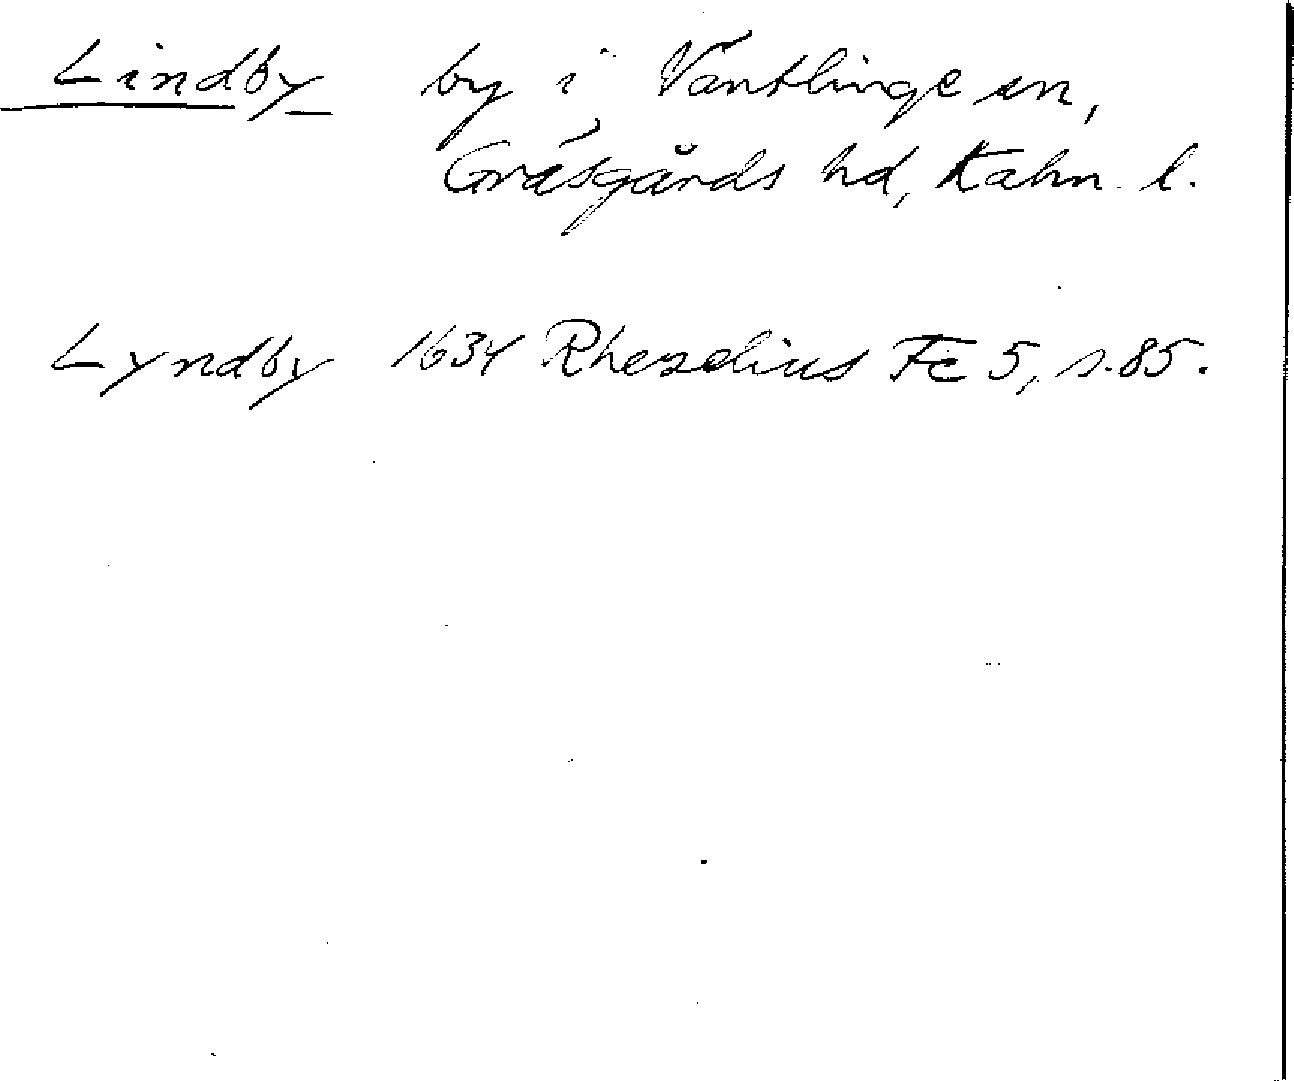 Lindby by i Ventlinge sn,
Gräsgårds hd, Kalm. l.
Lyndby 1634 Rhezelius Fc 5, s. 85.